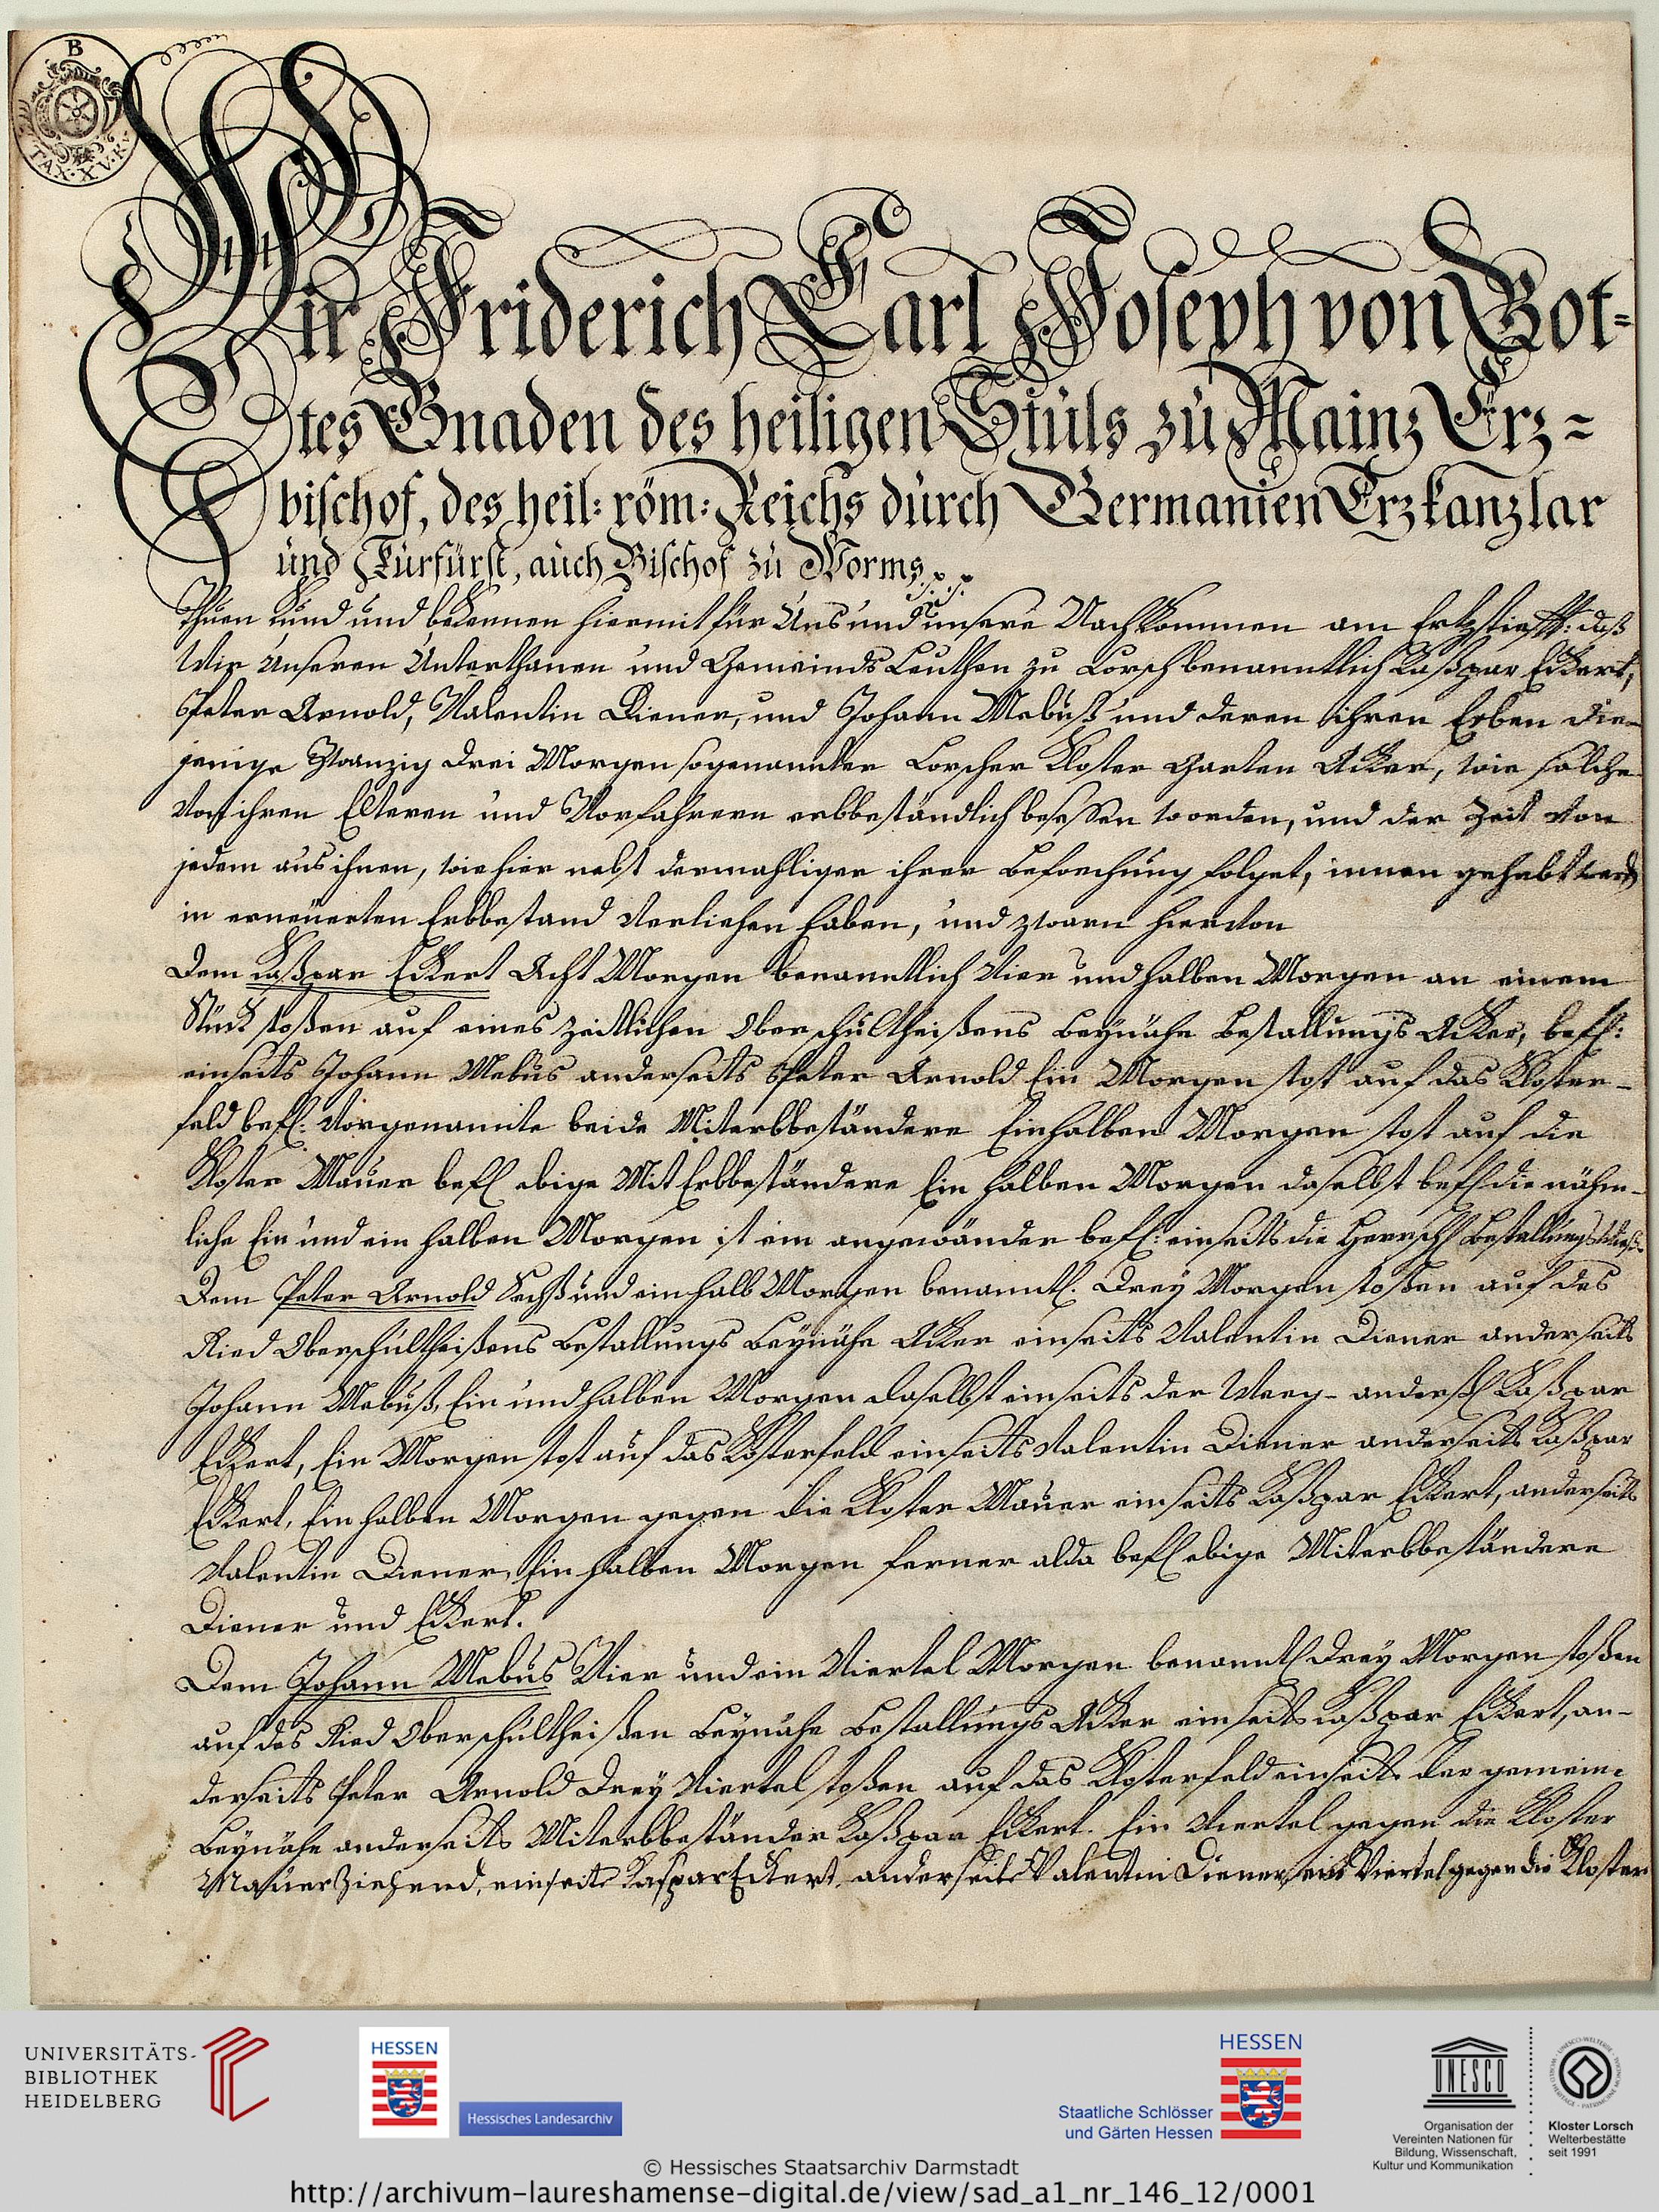 B
TAX · XV · K
Wir Friderich Carl Joseph von Got-
tes Gnaden des heiligen Stuls zu Mainz Erz-
bischof, des heil: röm: Reichs durch Germanien Erzkanzlar
und Kurfürst, auch Bischof zu Worms p. p.
Thuen kund und bekennen hiermit für Uns und unsere Nachkommen am Ertzstiefft: daß
Wir Unseren Unterthanen und Gemeinds Leuthen zu Lorsch benanntlich Kaßpar Eckert,
Peter Arnold, Valentin Diener, und Johann Mebuß und deren ihren Erben die-
jenige Zwanzig drei Morgen sogenannter Lorscher Kloster Garten Äcker, wie solche
von ihren Elteren und Vorfahrern erbbeständlich besessen worden, und der Zeit von
jedem aus ihnen, wie hier nebst dermahliger ihrer Beforchung folget, innen gehabt werd
in erneuerten Erbbestand verliehen haben, und zwarn hiervon
Dem Kaßpar Eckert Acht Morgen benanntlich Vier und halben Morgen an einem
Stück stoßen auf eines zeitlichen Oberschultheißens Beynühe Bestallungs Äcker, beff:
einseits Johann Mebus anderseits Peter Arnold Ein Morgen stost auf das Kloster-
feld beff: vorgenannte beide Miterbbeständere Einhalben Morgen stost auf die
Kloster Mauer beff obige Mit Erbbeständere Ein halben Morgen daselbst beff die nähm-
liche Ein und ein halben Morgen ist ein angewänder beff: einseits die Herrschl Bestallungs
Dem Peter Arnold Sechs und ein halb Morgen benanntl. Drey Morgen stoßen auf des
Ried Oberschultheißens Bestallungs Beynühe Äcker einseits Valentin Diener anderseits
Johann Mebuß, Ein und halben Morgen daselbst einseits der Weeg- anders Kaßpar
Eckert, Ein Morgen stost auf das Klosterfeld einseits Valentin Diener anderseits Kaßpar
Eckert, Ein halben Morgen gegen die Kloster Mauer einseits Kaßpar Eckert, anderseits
Valentin Diener, Ein halben Morgen ferner alda beff obige Miterbbeständere
Diener und Eckert.
Dem Johann Mebus Vier und ein Viertel Morgen benanntl Drey Morgen stoßen
auf des Ried Oberschultheißen Beynühe Bestallungs Äcker einseits Kaßpar Eckert, an-
derseits Peter Arnold Drey Viertel stoßen auf das Klosterfeld einseits der gemeine
Beynühe anderseits Miterbbeständer Kaßpar Eckert. Ein Viertel gegen die Kloster
Mauer Ziehend, einseits Kaspar Eckert, anderseits Valentin Diener, ein Viertel gegen die Kloster
UNIVERSITÄTS-
BIBLIOTHEK
HEIDELBERG
HESSEN
Hessisches Landesarchiv
HESSEN
Staatliche Schlösser
und Gärten Hessen
UNESCO
Organisation der
Vereinten Nationen für
Bildung, Wissenschaft,
Kultur und Kommunikation
Kloster Lorsch
Welterbestätte
seit 1991
© Hessisches Staatsarchiv Darmstadt
http://archivum-laureshamense-digital.de/view/sad_a1_nr_146_12/0001